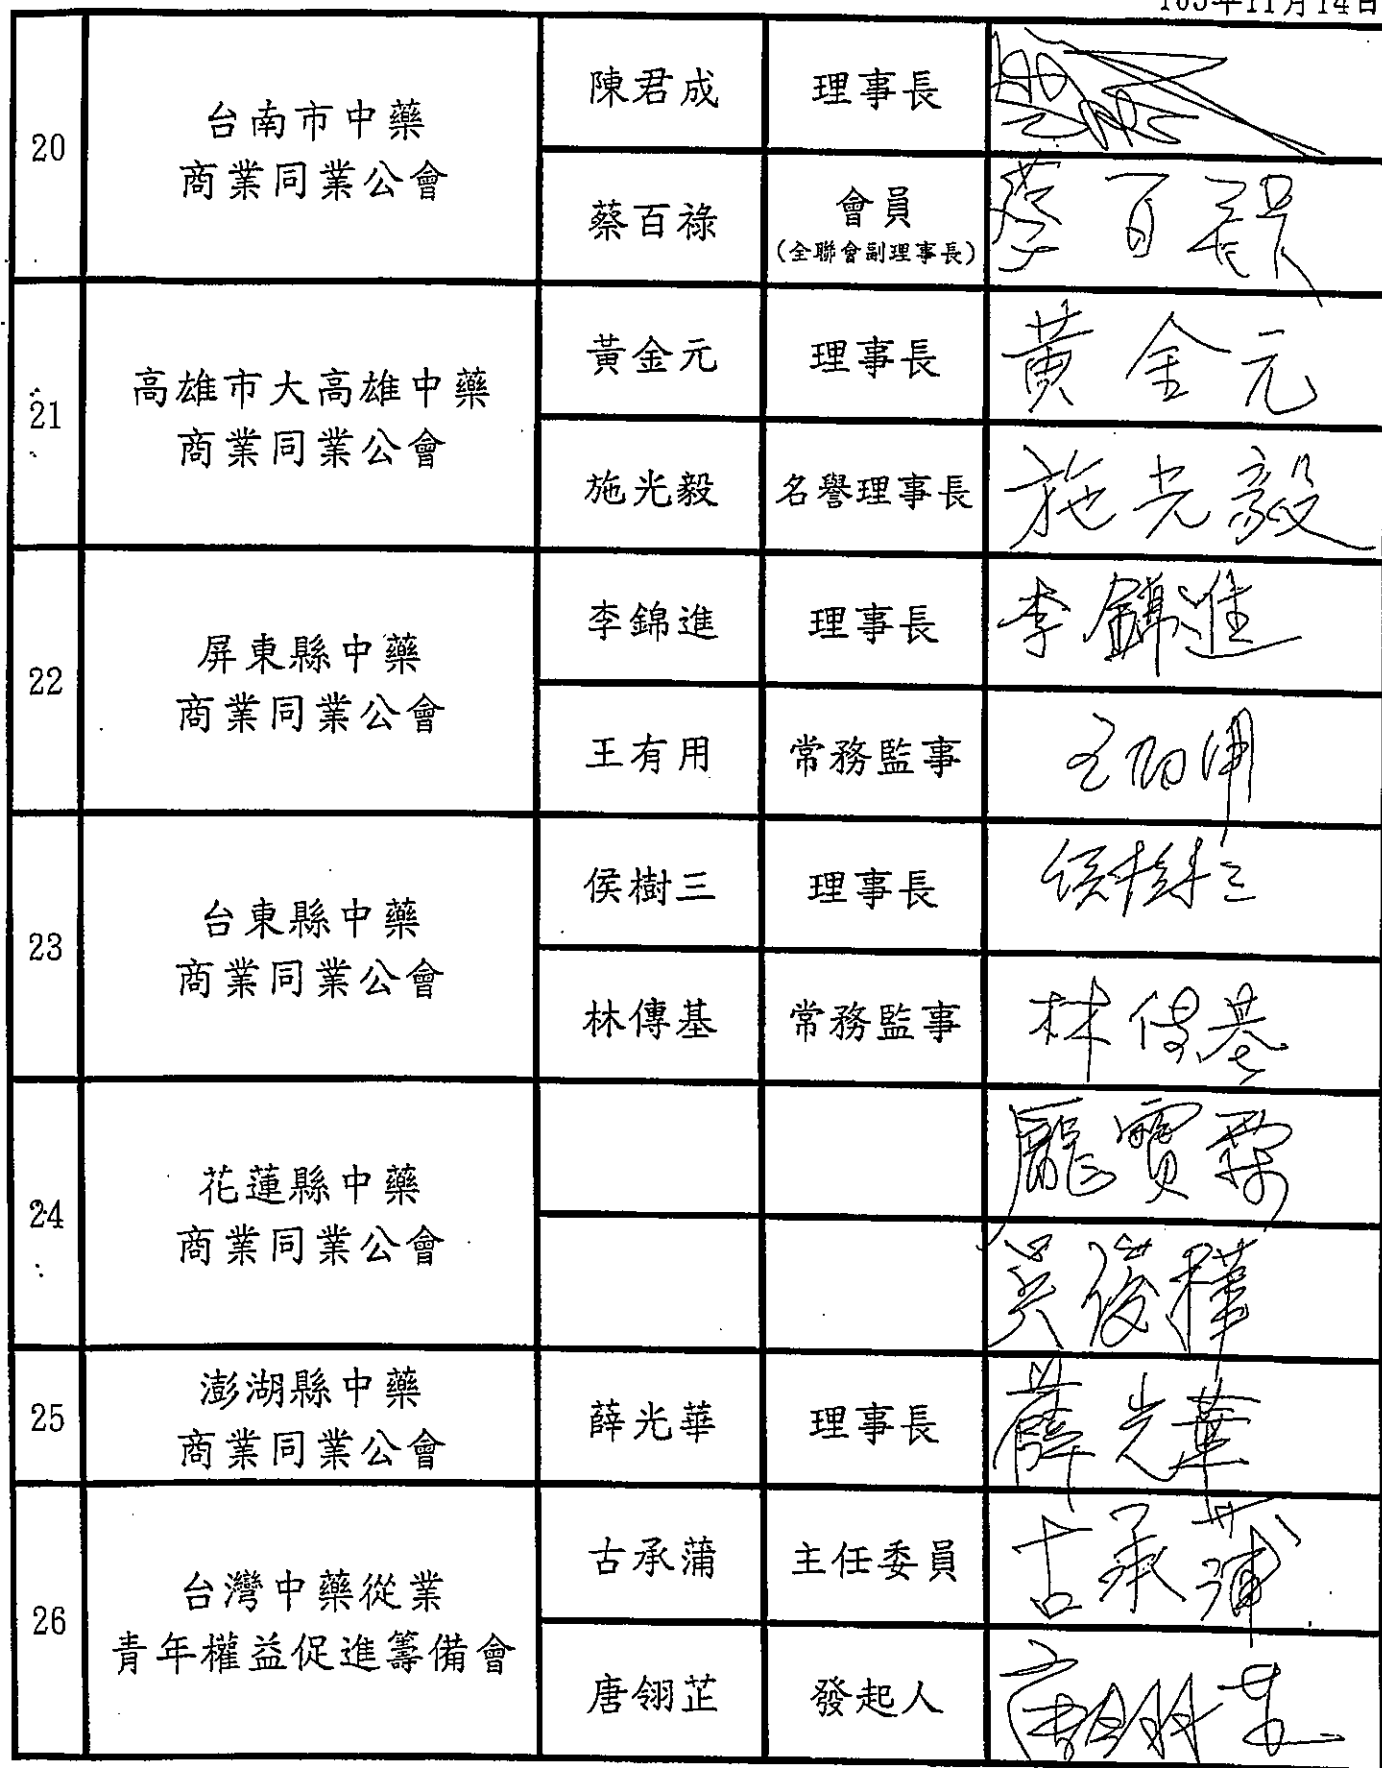 105年11月14日
20
台南市中藥
商業同業公會
陳君成
理事長
蔡百祿
會員
(全聯會副理事長)
蔡百祿
21
高雄市大高雄中藥
商業同業公會
黃金元
理事長
黃金元
施光毅
名譽理事長
施光毅
22
屏東縣中藥
商業同業公會
李錦進
理事長
李錦進
王有用
常務監事
王有用
23
台東縣中藥
商業同業公會
侯樹三
理事長
侯樹三
林傳基
常務監事
林傳基
24
花蓮縣中藥
商業同業公會
吳俊樺
25
澎湖縣中藥
商業同業公會
薛光華
理事長
薛光華
26
台灣中藥從業
青年權益促進籌備會
古承蒲
主任委員
古承蒲
唐翎芷
發起人
唐翎芷